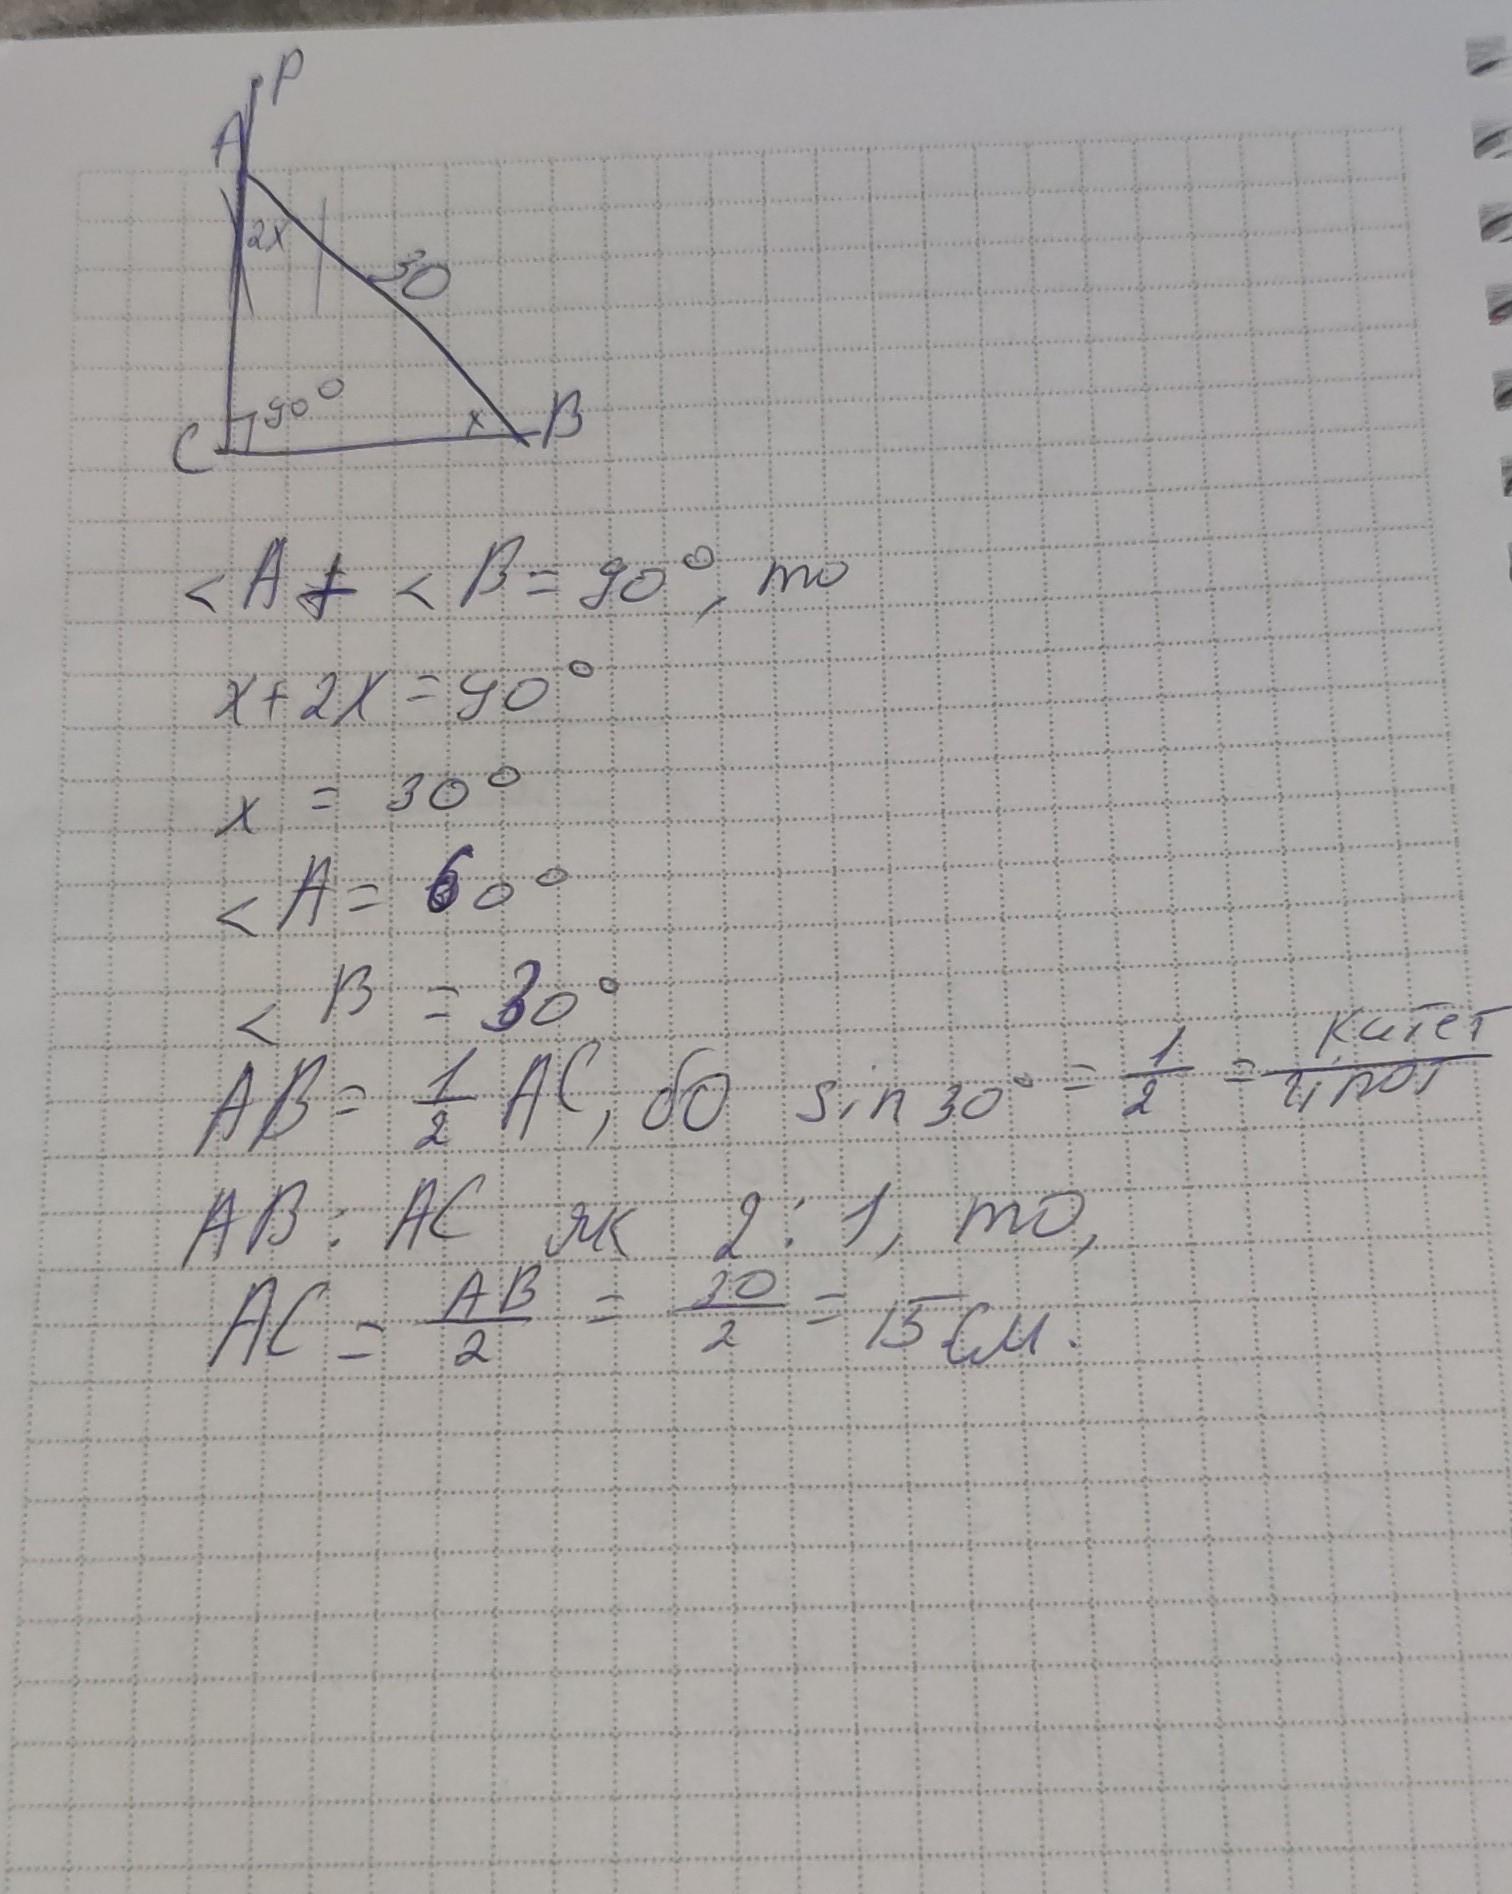 P
A
2x
30
90°
C
x
B
< A + < B = 90°, то
x + 2x = 90°
x = 30°
< A = 60°
< B = 30°
AB = 1/2 AC, бо sin 30° = 1/2 = катет/гіпот
AB : AC як 2 : 1, то,
AC = AB/2 = 30/2 = 15 см.